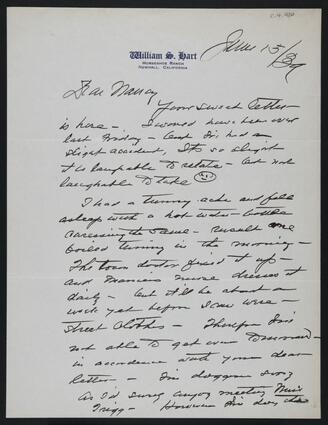 William S. Hart
Horseshoe Ranch
Newhall, California
June 15/39
Dear Nancy
Your sweet letter
is here - I would have been over
last Friday - but I've had a
slight accident, Its so slight
it is laughable to relate - but not
laughable to take
I had a tummy ache and fell
asleep with a hot water bottle
caressing the same - result one
boiled tummy in the morning -
The town doctor fixed it up -
and nurse dresses it
daily - but it'll be about a
week yet before I can wear -
street clothes - Therefore I'm
not able to get over
in accordance with your dear
letter - I'm doggone sorry
as I'd sure enjoy meeting Miss
- However